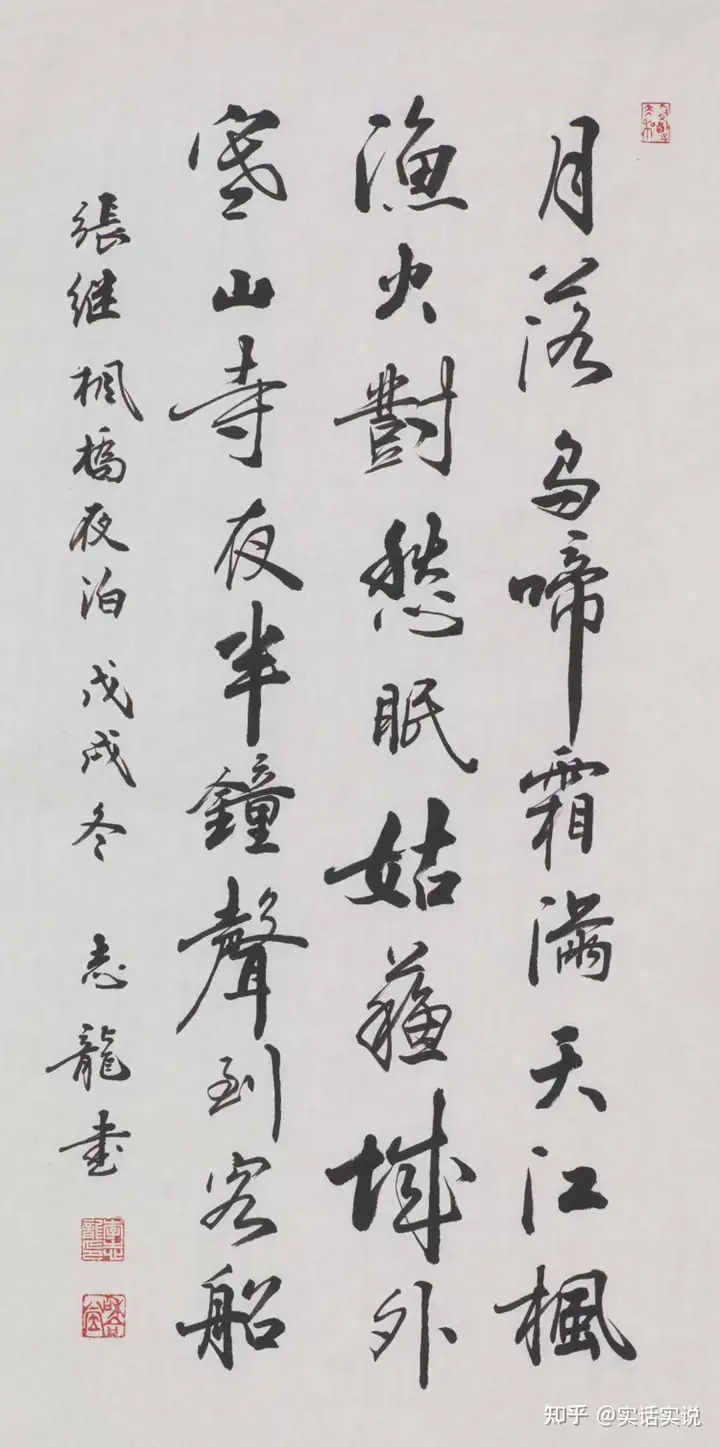 月落烏啼霜滿天江楓
漁火對愁眠姑蘇城外
寒山寺夜半鐘聲到客船
張继楓橋夜泊 戊戌冬 志龍书
知乎 @实话实说